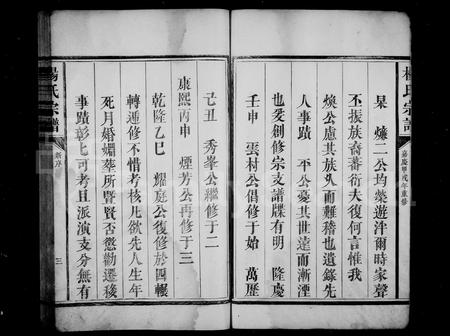 楊氏宗譜
嘉慶甲戌年重修
杲 爌二公均藻遊泮爾時家聲
丕振族裔蕃衍夫復何言惟我
煥公慮其族久而難稽也遺錄先
人事蹟 平公憂其世遠而漸湮
也爰創修宗支譜牒有明 隆慶
壬申 雲村公倡修于始 萬歷
己丑 秀峯公繼修于二
康熙丙申 煙芳公再修于三
乾隆乙巳 耀庭公復修於四輾
轉遞修不惜考核凡欲先人生年
死月婚姻葬所暨賢否懲勸遷移
事蹟彰彰可考且派演支分無有
楊氏宗譜
序
三